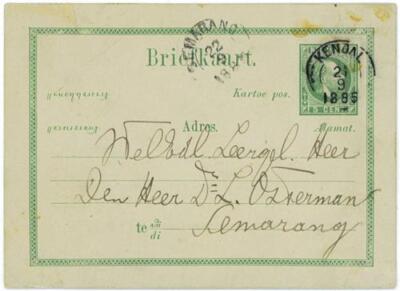 SEMARANG
22
Briefkaart.
KENDAL
21
9
1885
Kartoe pos.
5 CENT
Adres.
Alamat.
WelEdl. Leergel. Heer
Den Heer Dr. L. Osterman
te
di
Semarang